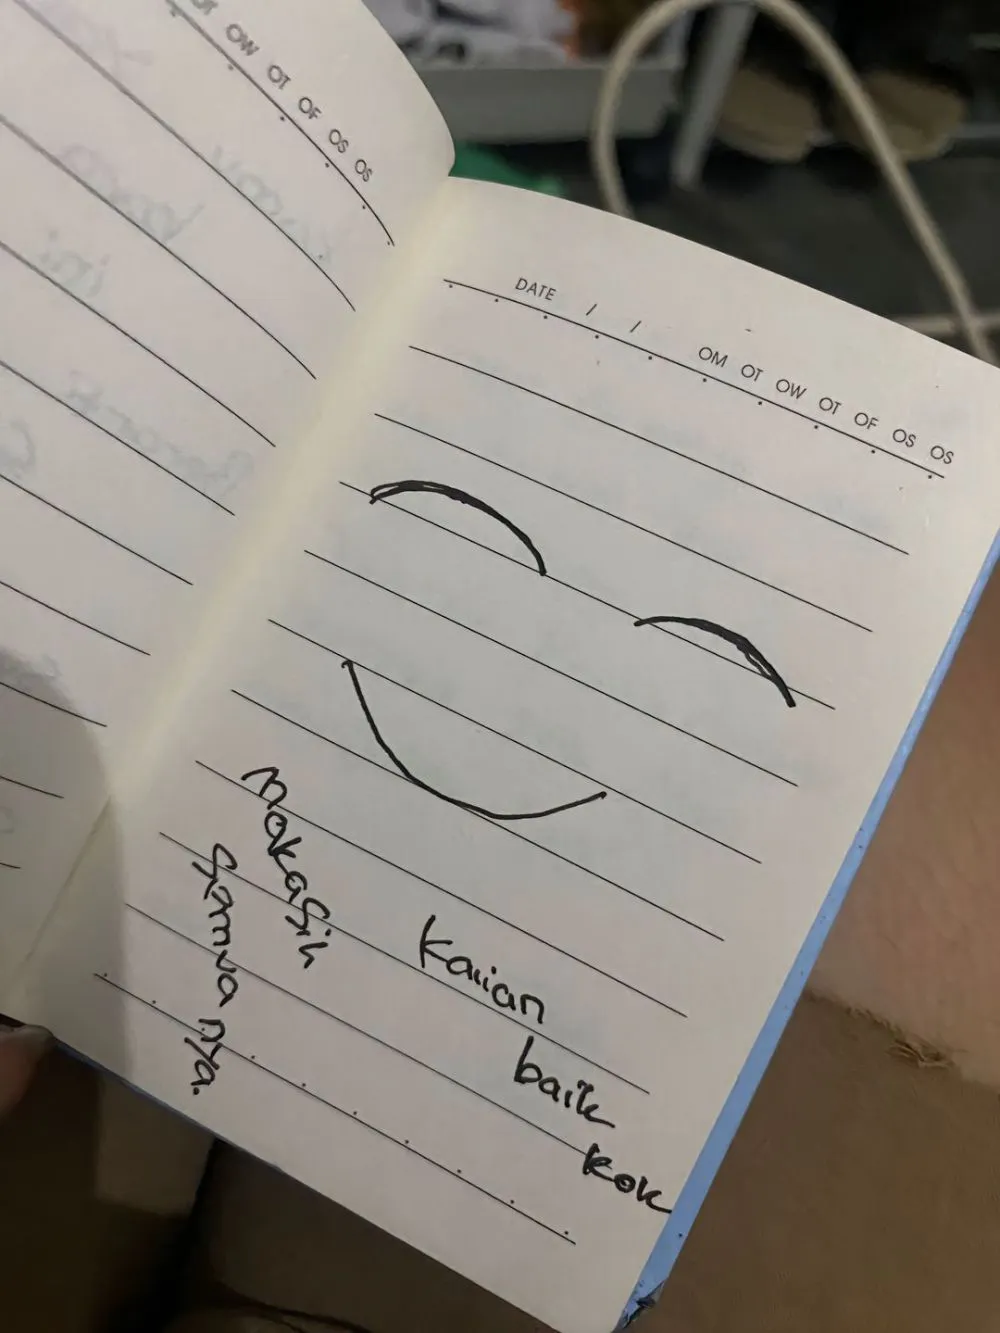 OW OT OF OS OS
DATE / / OM OT OW OT OF OS OS
Makasih
Semua nya.
Kalian
baik
kok